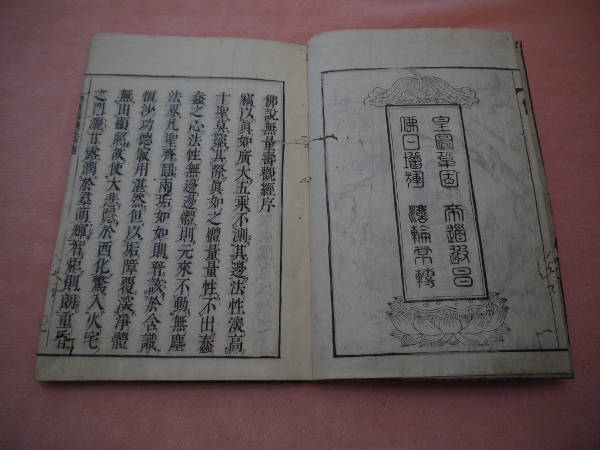 皇圖鞏固 帝道遐昌
佛日增輝 灋輪常轉
佛說無量壽觀經序
竊以眞如廣大五乘不測其邊法性深高
十聖莫窮其際眞如之體量量性不出蠢
蠢之心法性無邊邊體則元來不動無塵
法界凡聖齊圓兩垢如如則普該於含識
恒沙功德寂用湛然但以垢障覆深淨體
無由顯照故使大悲隱於西化驚入火宅
之門灑甘露潤於羣萌輝智炬則朗重昏